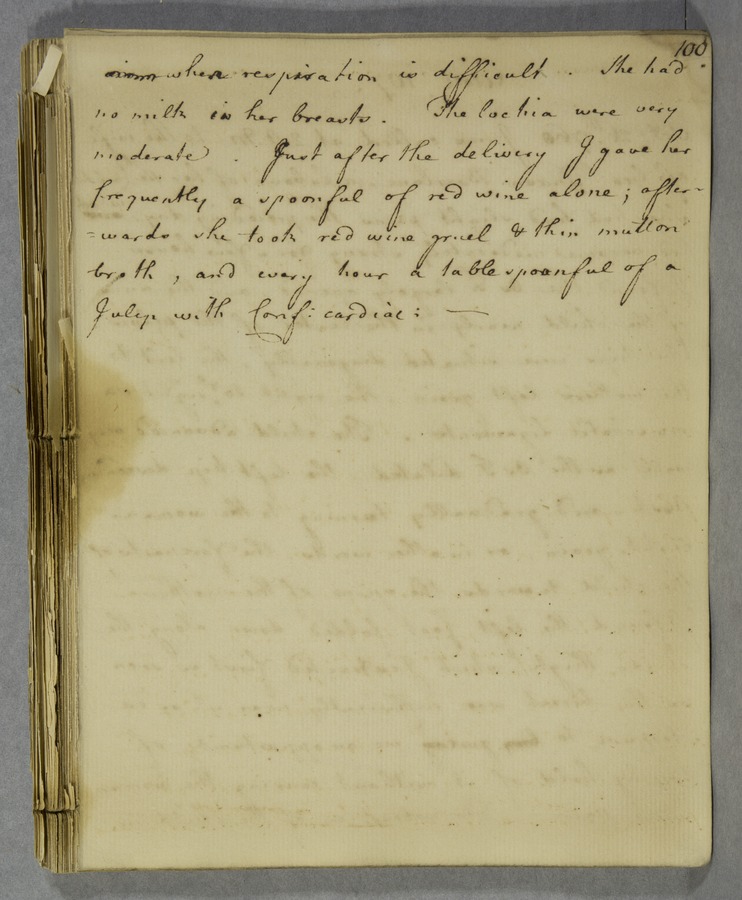 100
when respiration is difficult. She had
no milk in her breasts. The lochia were very
moderate. Just after the delivery I gave her
frequently a spoonful of red wine alone; after=
=wards she took red wine gruel & thin mutton
broth, and every hour a tablespoonful of a
Julep with Conf: cardiac: —